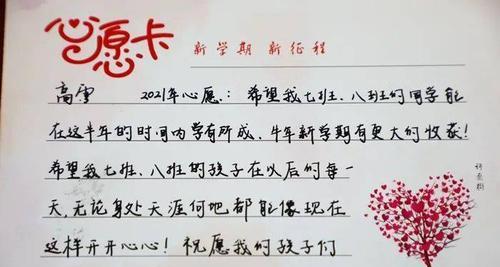 心愿卡
新学期 新征程
高雪 2021年心愿：希望我七班、八班的同学能
在这半年的时间内学有所成，牛年新学期有更大的收获！
希望我七班、八班的孩子在以后的每一
天，无论身处天涯何吧都能像现在
这样开开心心！祝愿我的孩子们